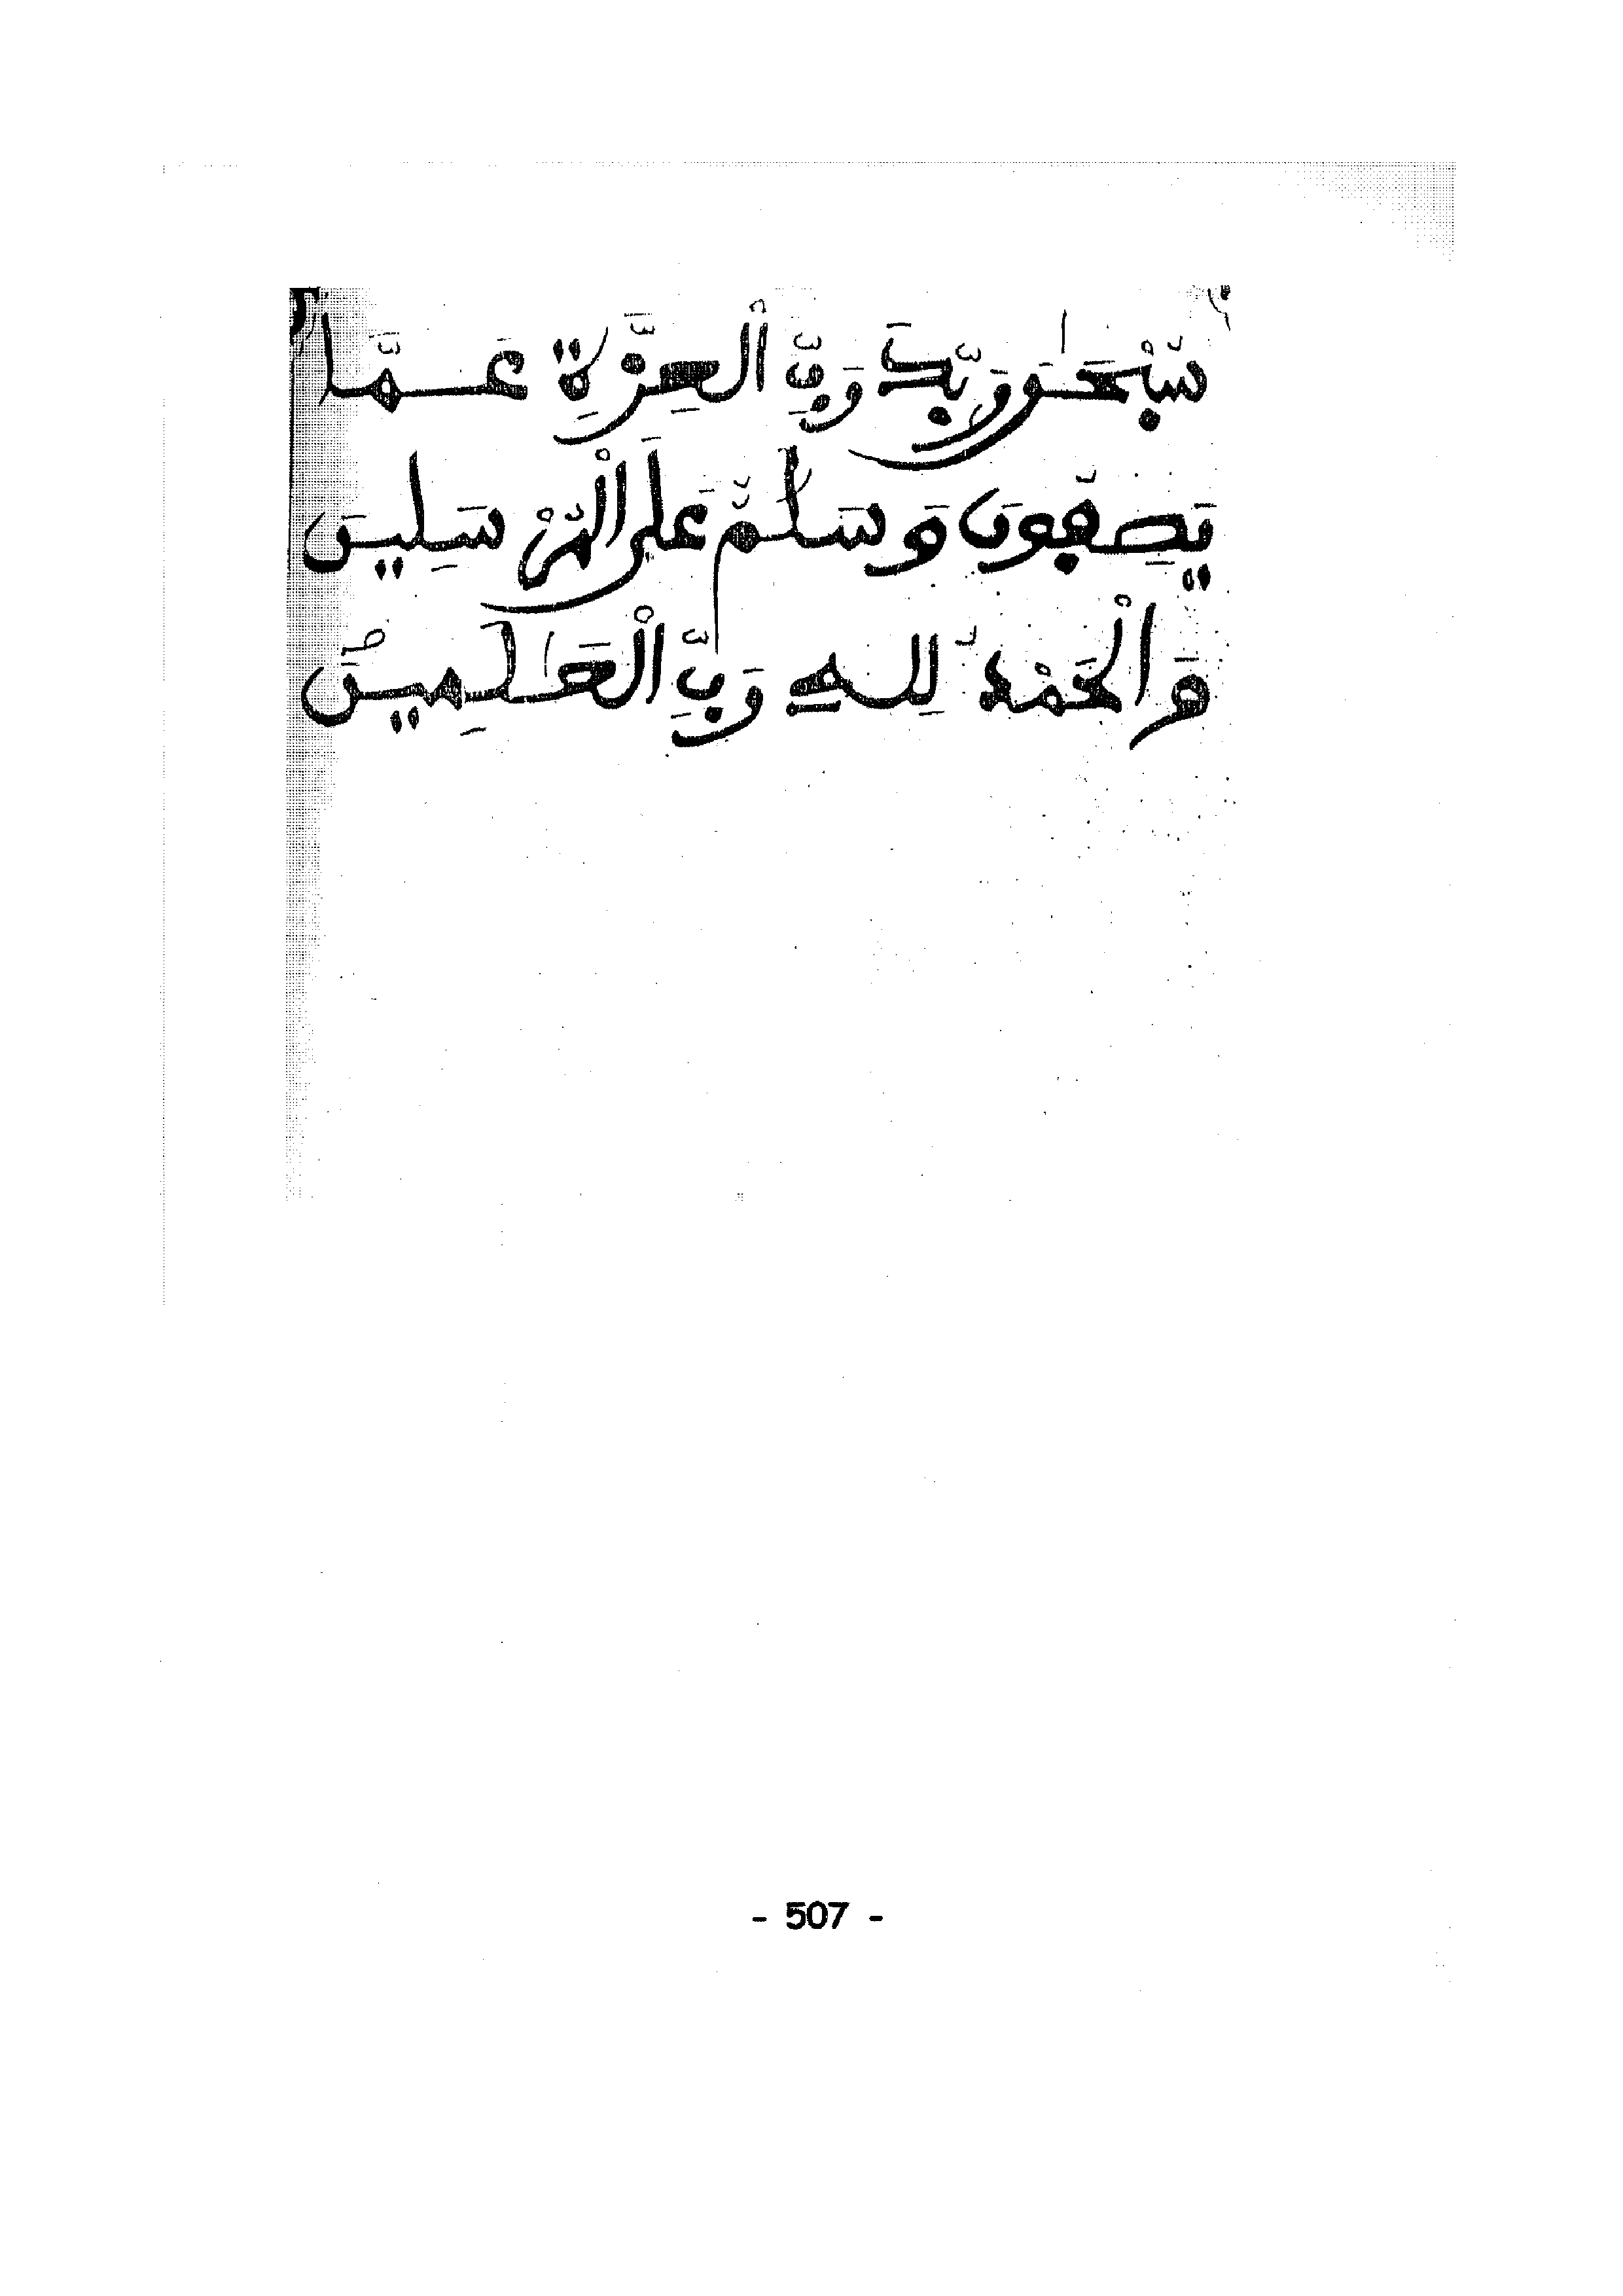 سُبْحَٰنَ رَبِّكَ رَبِّ الْعِزَّةِ عَمَّا
يَصِفُونَ وَسَلَٰمٌ عَلَى الْمُرْسَلِينَ
وَالْحَمْدُ لِلهِ رَبِّ الْعَٰلَمِينَ
- 507 -